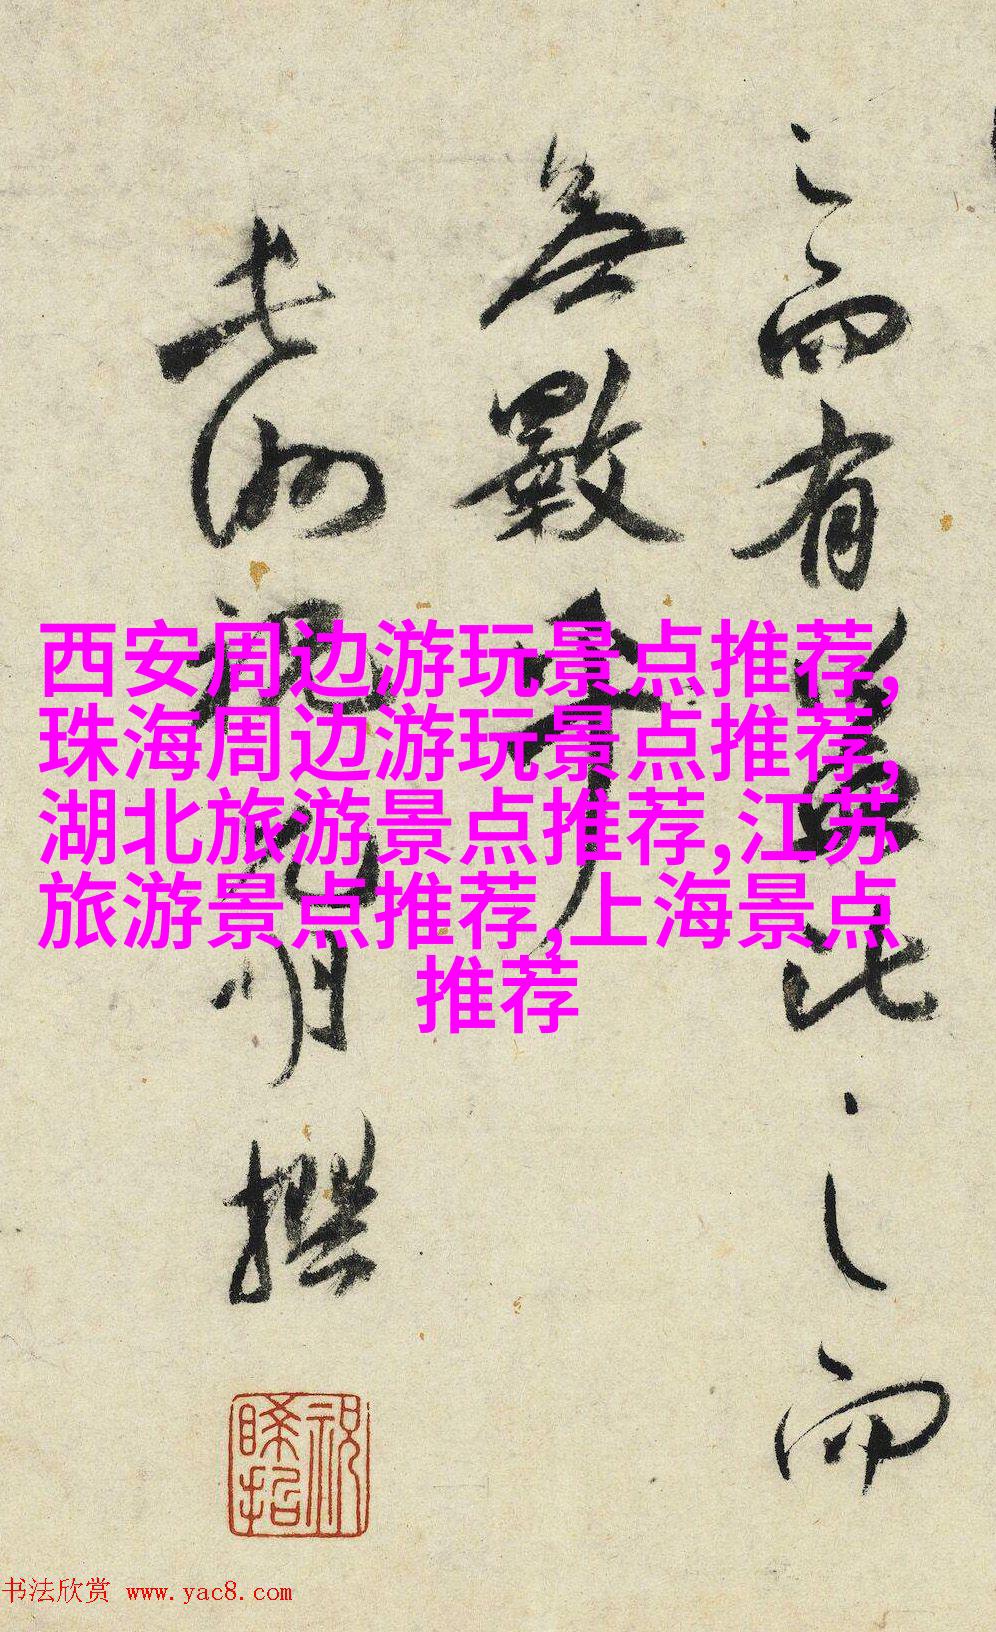 之而有益比之而
無數
長洲祝允明撰
西安周边游玩景点推荐,
珠海周边游玩景点推荐,
湖北旅游景点推荐,江苏
旅游景点推荐,上海景点
推荐
书法欣赏 www.yac8.com